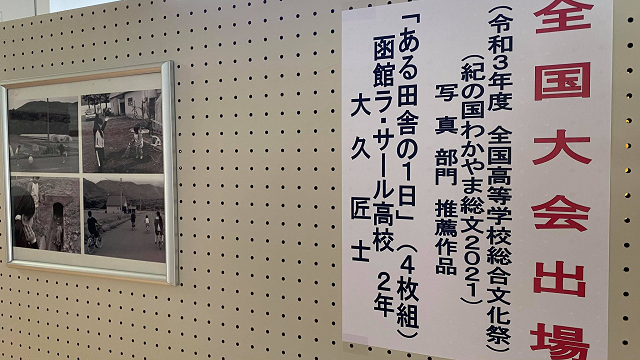 全国大会出場
(令和3年度 全国高等学校総合文化祭)
(紀の国わかやま総文2021)
写真部門 推薦作品
「ある田舎の1日」(4枚組)
函館ラ・サール高校 2年
大久 匠士